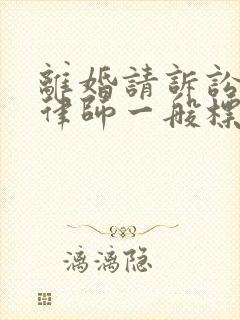 離婚請訴訟
律師一般標
漓漓隐